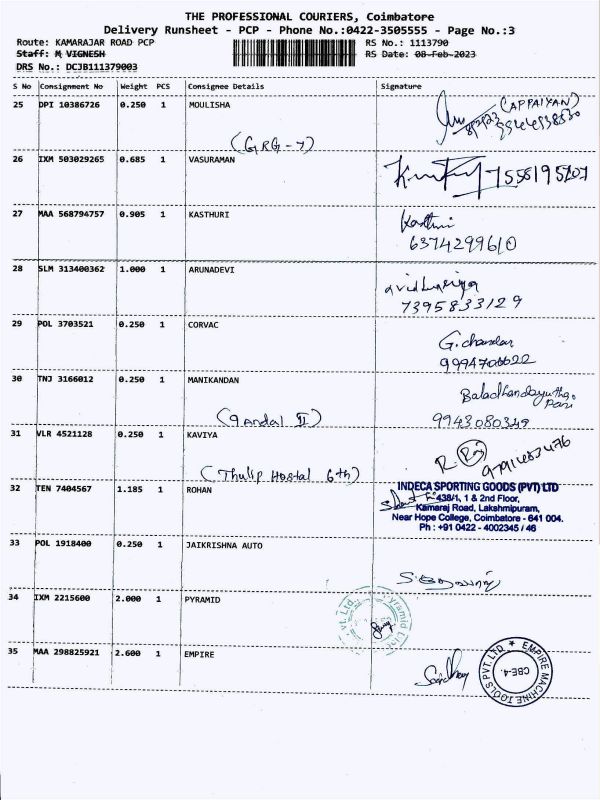 THE PROFESSIONAL COURIERS, Coimbatore
Delivery Runsheet - PCP - Phone No.:0422-3505555 - Page No.:3
Route: KAMARAJAR ROAD PCP RS No.: 1113790
Staff: M VIGNESH RS Date: 08-Feb-2023
DRS No.: DCJB111379003
S No Consignment No Weight PCS Consignee Details Signature
25 DPI 10386726 0.250 1 MOULISHA
(APPAIYAN)
(GRG-7)
26 IXM 503029265 0.685 1 VASURAMAN
27 MAA 568794757 0.905 1 KASTHURI
Kasthuri
6374299610
28 SLM 313400362 1.000 1 ARUNADEVI
7395833129
29 POL 3703521 0.250 1 CORVAC
G. chandar
30 TNJ 3166012 0.250 1 MANIKANDAN
9943080349
31 VLR 4521128 0.250 1 KAVIYA
(Thulip Hostal 6th)
32 TEN 7404567 1.185 1 ROHAN
INDECA SPORTING GOODS (PVT) LTD
438/1, 1 & 2nd Floor,
Kamaraj Road, Lakshmipuram,
Near Hope College, Coimbatore - 641 004.
Ph : +91 0422 - 4002345 / 46
33 POL 1918400 0.250 1 JAIKRISHNA AUTO
34 IXM 2215600 2.000 1 PYRAMID
Pyramid
35 MAA 298825921 2.600 1 EMPIRE
EMPIRE MACHINE TOOLS PVT. LTD.
CBE-4.